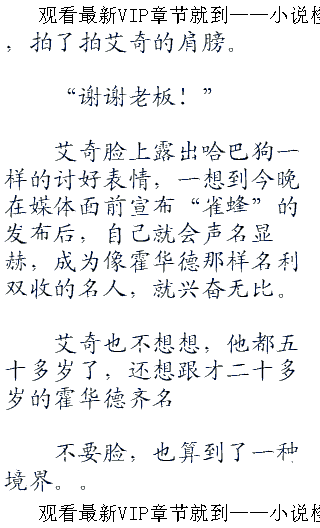 观看最新VIP章节就到——小说
，拍了拍艾奇的肩膀。
“谢谢老板！”
艾奇脸上露出哈巴狗一
样的讨好表情，一想到今晚
在媒体面前宣布“雀蜂”的
发布后，自己就会声名显
赫，成为像霍华德那样名利
双收的名人，就兴奋无比。
艾奇也不想想，他都五
十多岁了，还想跟才二十多
岁的霍华德齐名
不要脸，也算到了一种
境界。。
观看最新VIP章节就到——小说